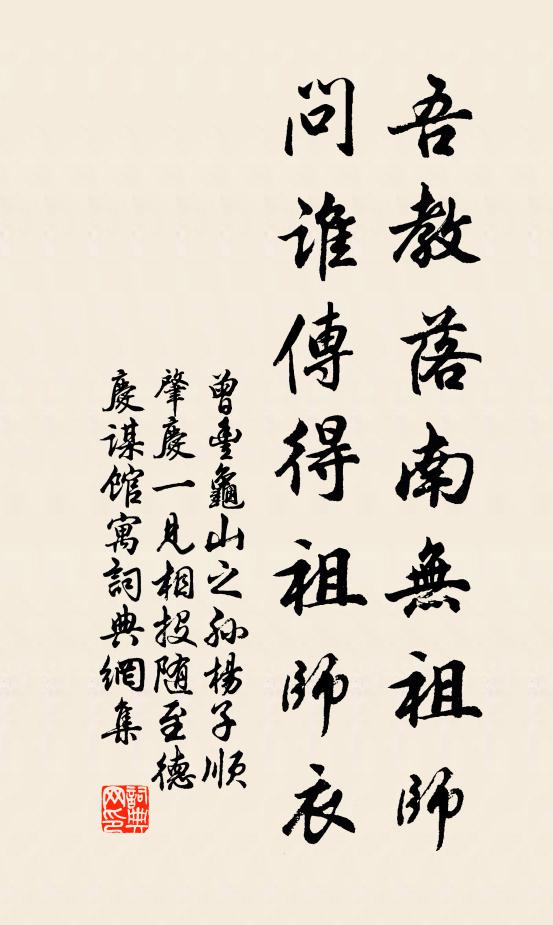 吾教落南無祖師
問誰傳得祖師衣
曾豐龜山之孫楊子順
肇慶一見相投随至德
慶謀館寓詞典網集
詞典网印